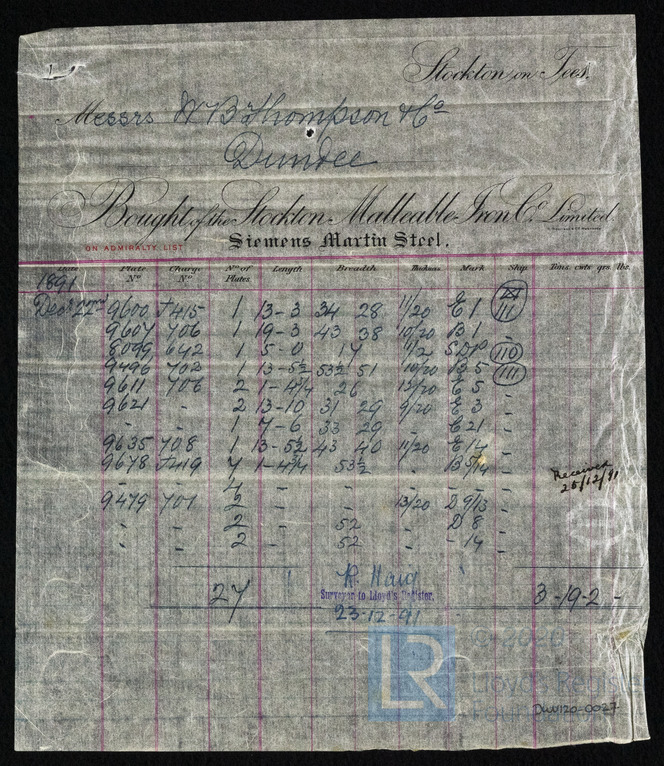 Stockton on Tees.
Messrs W B Thompson & Co
Dundee
Bought of the Stockton Malleable Iron Co. Limited.
ON ADMIRALTY LIST
Siemens Martin Steel.
Date Plate No Charge No No of Plates Length Breadth Thickness Mark Ship Tons. cwts qrs. lbs.
1891
Decr 22nd 9600 J415 1 13-3 34 28 11/20 E 1 111
9607 706 1 19-3 43 38 10/20 B 1
8099 642 1 5-0 17 11/2 110
9496 702 1 13-5½ 53½ 51 10/20 B 5 111
9611 706 2 1-4¼ 26 12/20 E 5 -
9621 - 2 13-10 31 29 9/20 E 3 -
- - 1 7-6 33 29 - E 21 -
9635 708 1 13-5½ 43 40 11/20 E 14 -
9678 J419 4 1-4¼ 53½ - B 5/14 -
Received
25/12/91
9479 701 2 - - 13/20 D 9/13 -
- - 2 - 52 - D 8 -
- - 2 - 52 - - 14 -
R. Haig
27 Surveyor to Lloyd's Register. 3-19-2 -
23-12-91
LR
Lloyd's Register
Foundation
DUN120-0027